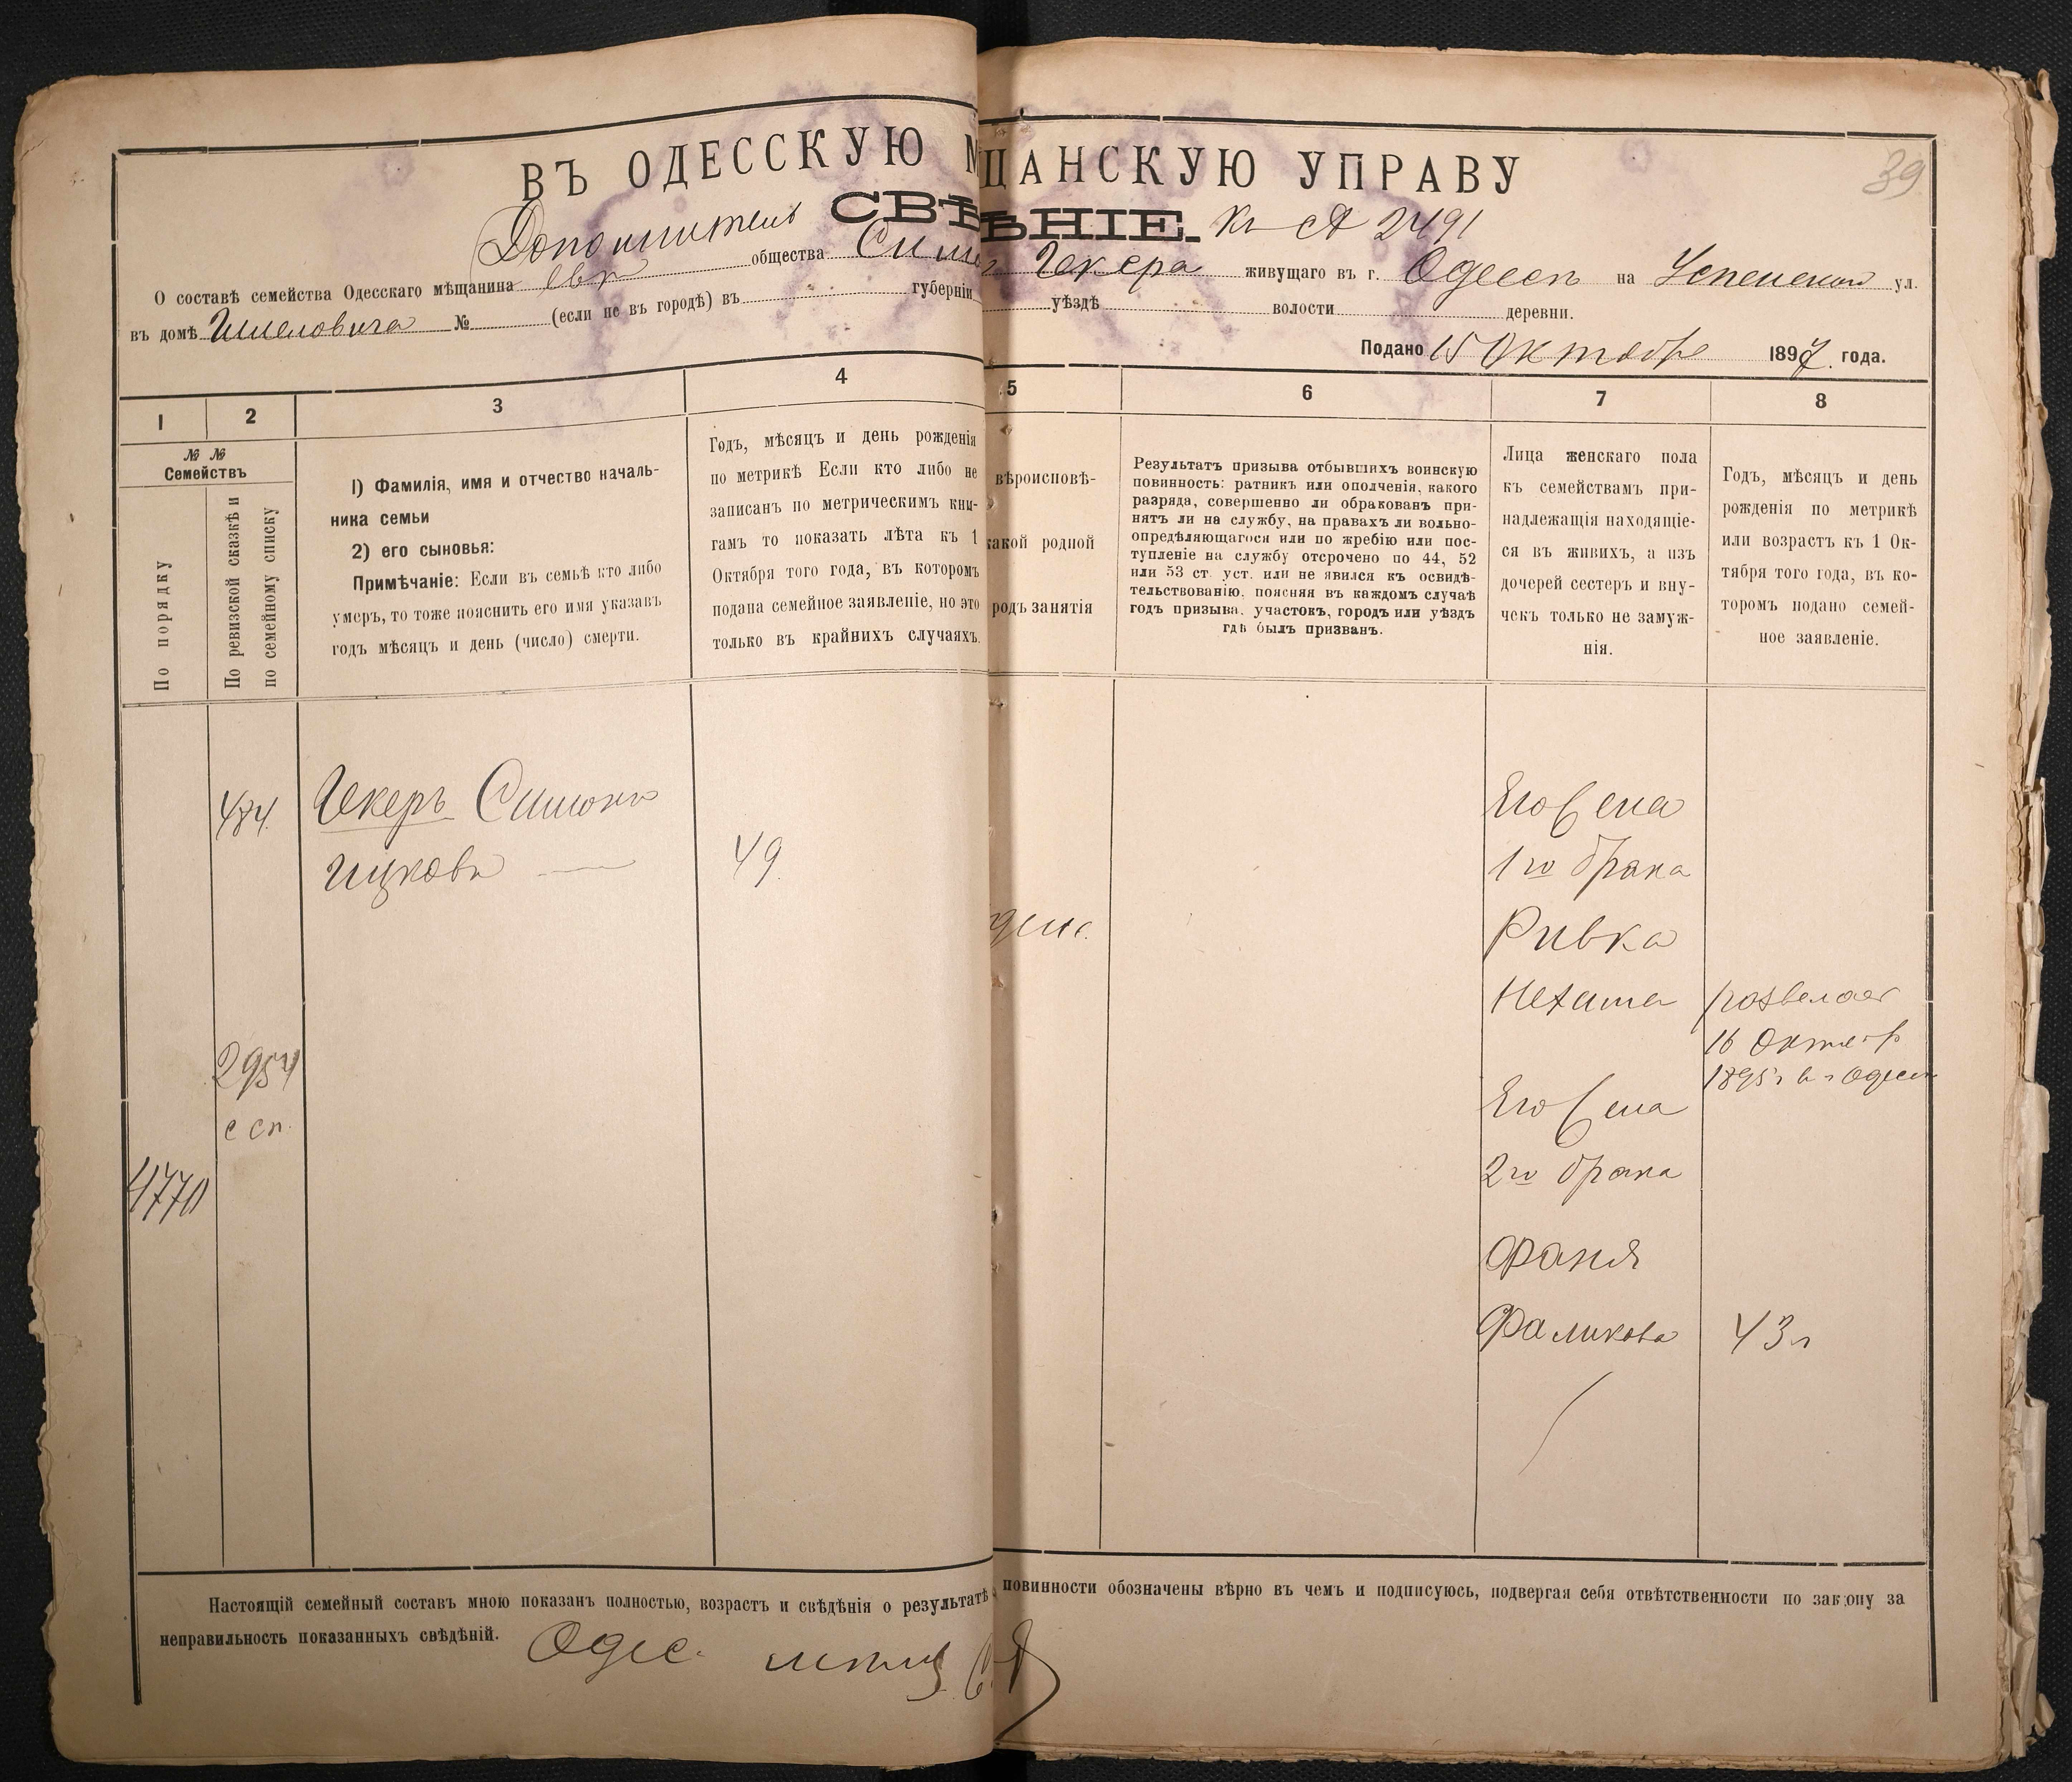 39
ВЪ ОДЕССКУЮ М ЩАНСКУЮ УПРАВУ
СВѢ ѢНІЕ. Къ № 2491
О составѣ семейства Одесскаго мѣщанина евр общества Симо Гекера живущаго въ г. Одессѣ на Успенской ул.
въ домѣ № (если не въ городѣ) въ губерніи уѣздѣ волости деревни.
Подано 15 Октября 1897 года.
1 2 3 4 5 6 7 8
№ № Семействъ
По порядку
По ревизской сказкѣ и
по семейному списку
1) Фамилія, имя и отчество началь-
ника семьи
2) его сыновья:
Примѣчаніе: Если въ семьѣ кто либо
умеръ, то тоже пояснить его имя указавъ
годъ мѣсяцъ и день (число) смерти.
Годъ, мѣсяцъ и день рожденія
по метрикѣ Если кто либо не
записанъ по метрическимъ кни-
гамъ то показать лѣта къ 1
Октября того года, въ которомъ
подана семейное заявленіе, но это
только въ крайнихъ случаяхъ.
вѣроисповѣ-
какой родной
родъ занятія
Результатъ призыва отбывшихъ воинскую
повинность: ратникъ или ополченія, какого
разряда, совершенно ли обракованъ при-
нятъ ли на службу, на правахъ ли вольно-
опредѣляющагося или по жребію или пос-
тупленіе на службу отсрочено по 44, 52
или 53 ст. уст. или не явился къ освидѣ-
тельствованію, поясняя въ каждомъ случаѣ
годъ призыва, участокъ, городъ или уѣздъ
гдѣ былъ призванъ.
Лица женскаго пола
къ семействамъ при-
надлежащія находящіе-
ся въ живихъ, а изъ
дочерей сестеръ и вну-
чекъ только не замуж-
нія.
Годъ, мѣсяцъ и день
рожденія по метрикѣ
или возрастъ къ 1 Ок-
тября того года, въ ко-
торомъ подано семей-
ное заявленіе.
484
Гекеръ Симонъ
Ицковъ
49
Его жена
1го брака
Ривка
Нехама
16 Октяб
1895 г в г Одесс
2954
с сп.
4770
Его жена
2го брака
Фаня
Фаликова 43 л
Настоящій семейный составъ мною показанъ полностью, возрастъ и свѣдѣнія о результатѣ повинности обозначены вѣрно въ чемъ и подписуюсь, подвергая себя отвѣтственности по закону за
неправильность показанныхъ свѣдѣній.
Одес.